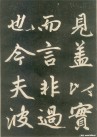 見蓋以實
而言非過
也今夫波